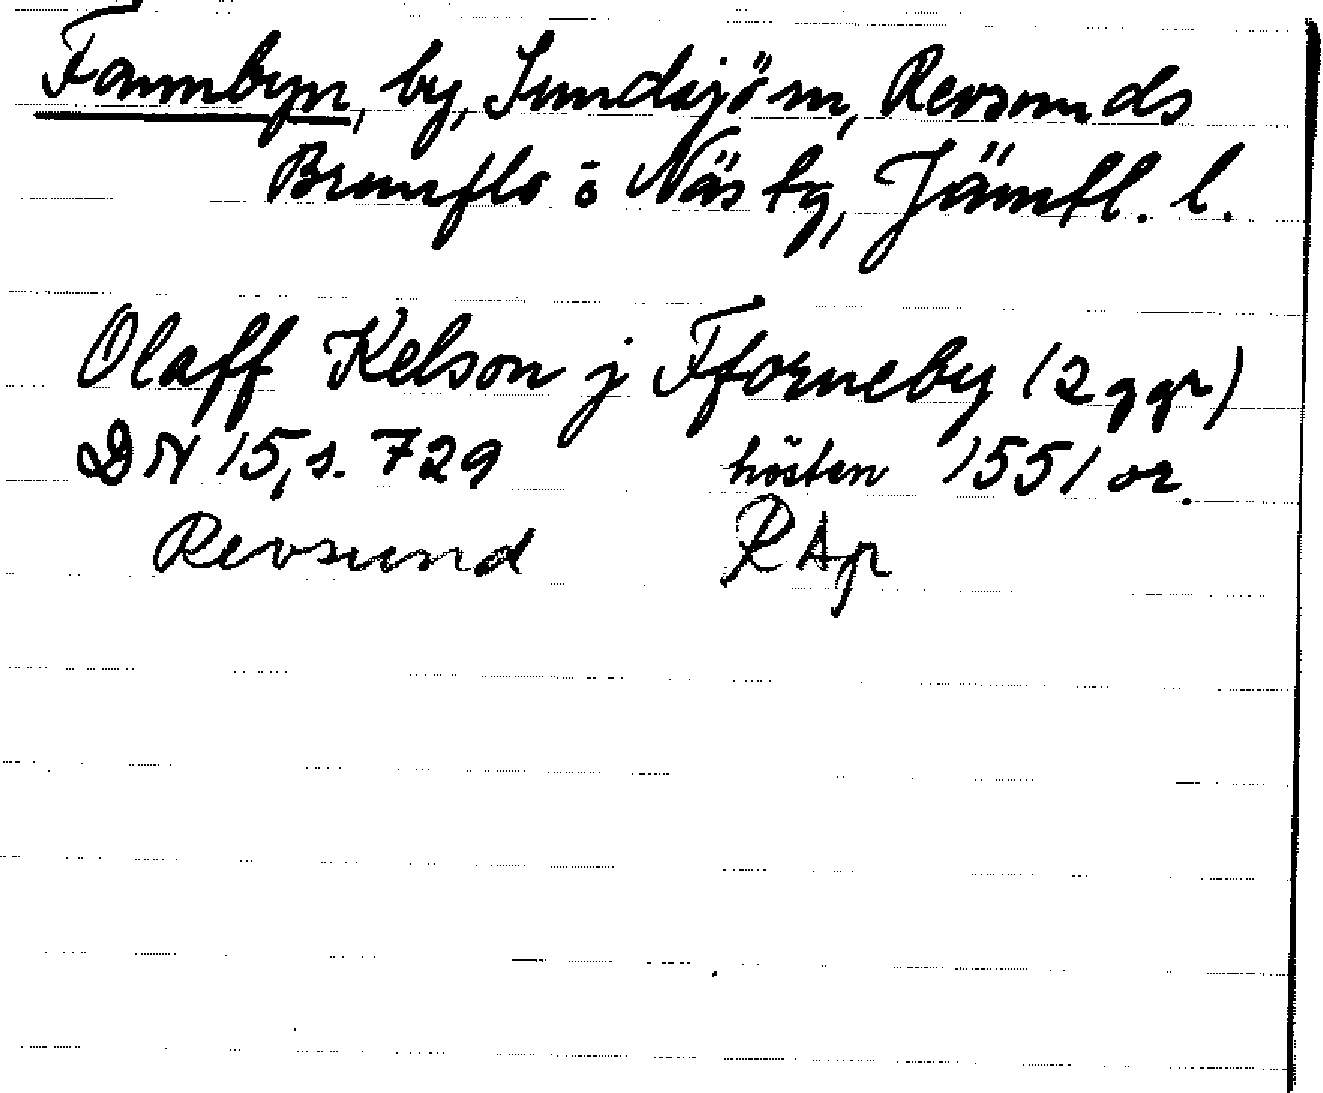 Fannbyn, by, Sundsjö sn, Revsunds
Brunflo o Näs tg, Jämtl. l.
Olaff Kelson j Fforneby (2 ggr)
DN 15, s. 729 hösten 1551 or.
Revsund RAp